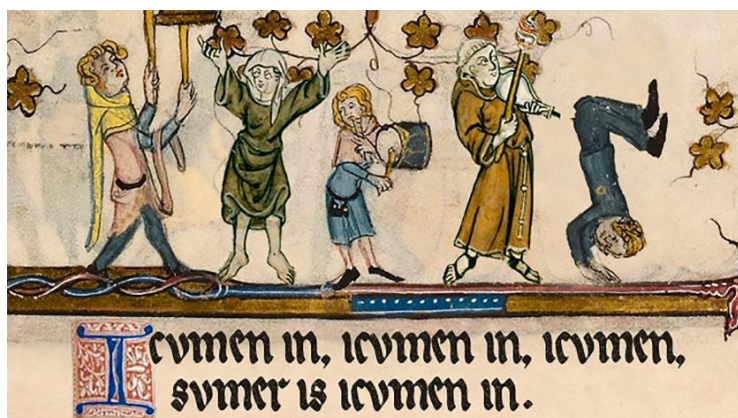 Icvmen in, icvmen in, icvmen,
svmer is icvmen in.